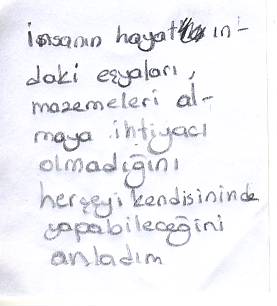 insanın hayatın-
daki eşyaları,
mazemeleri al-
maya ihtiyacı
olmadığını
herşeyi kendisininde
yapabileceğini
anladım